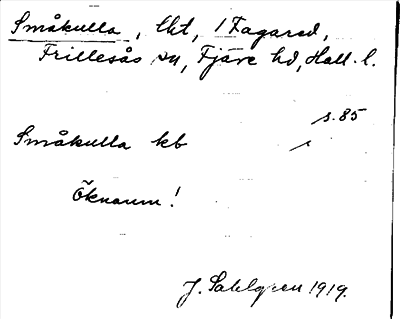 Småkulla, lht, 1 Fagared,
Frillesås sn, Fjäre hd, Hall. l.
s. 85
Småkulla kb
Öknamn!
J. Sahlgren 1919.